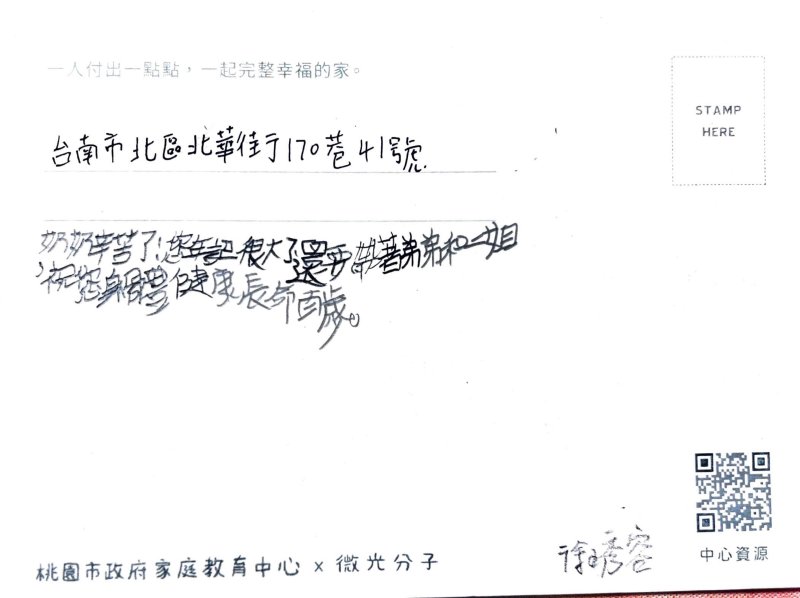 一人付出一點點，一起完整幸福的家。
STAMP
HERE
台南市北區北華街170巷41號
奶奶辛苦了!您年記很大了還要帶著弟弟和二姐
,祝您身體健康長命百歲。
秀容
中心資源
桃園市政府家庭教育中心 x 微光分子